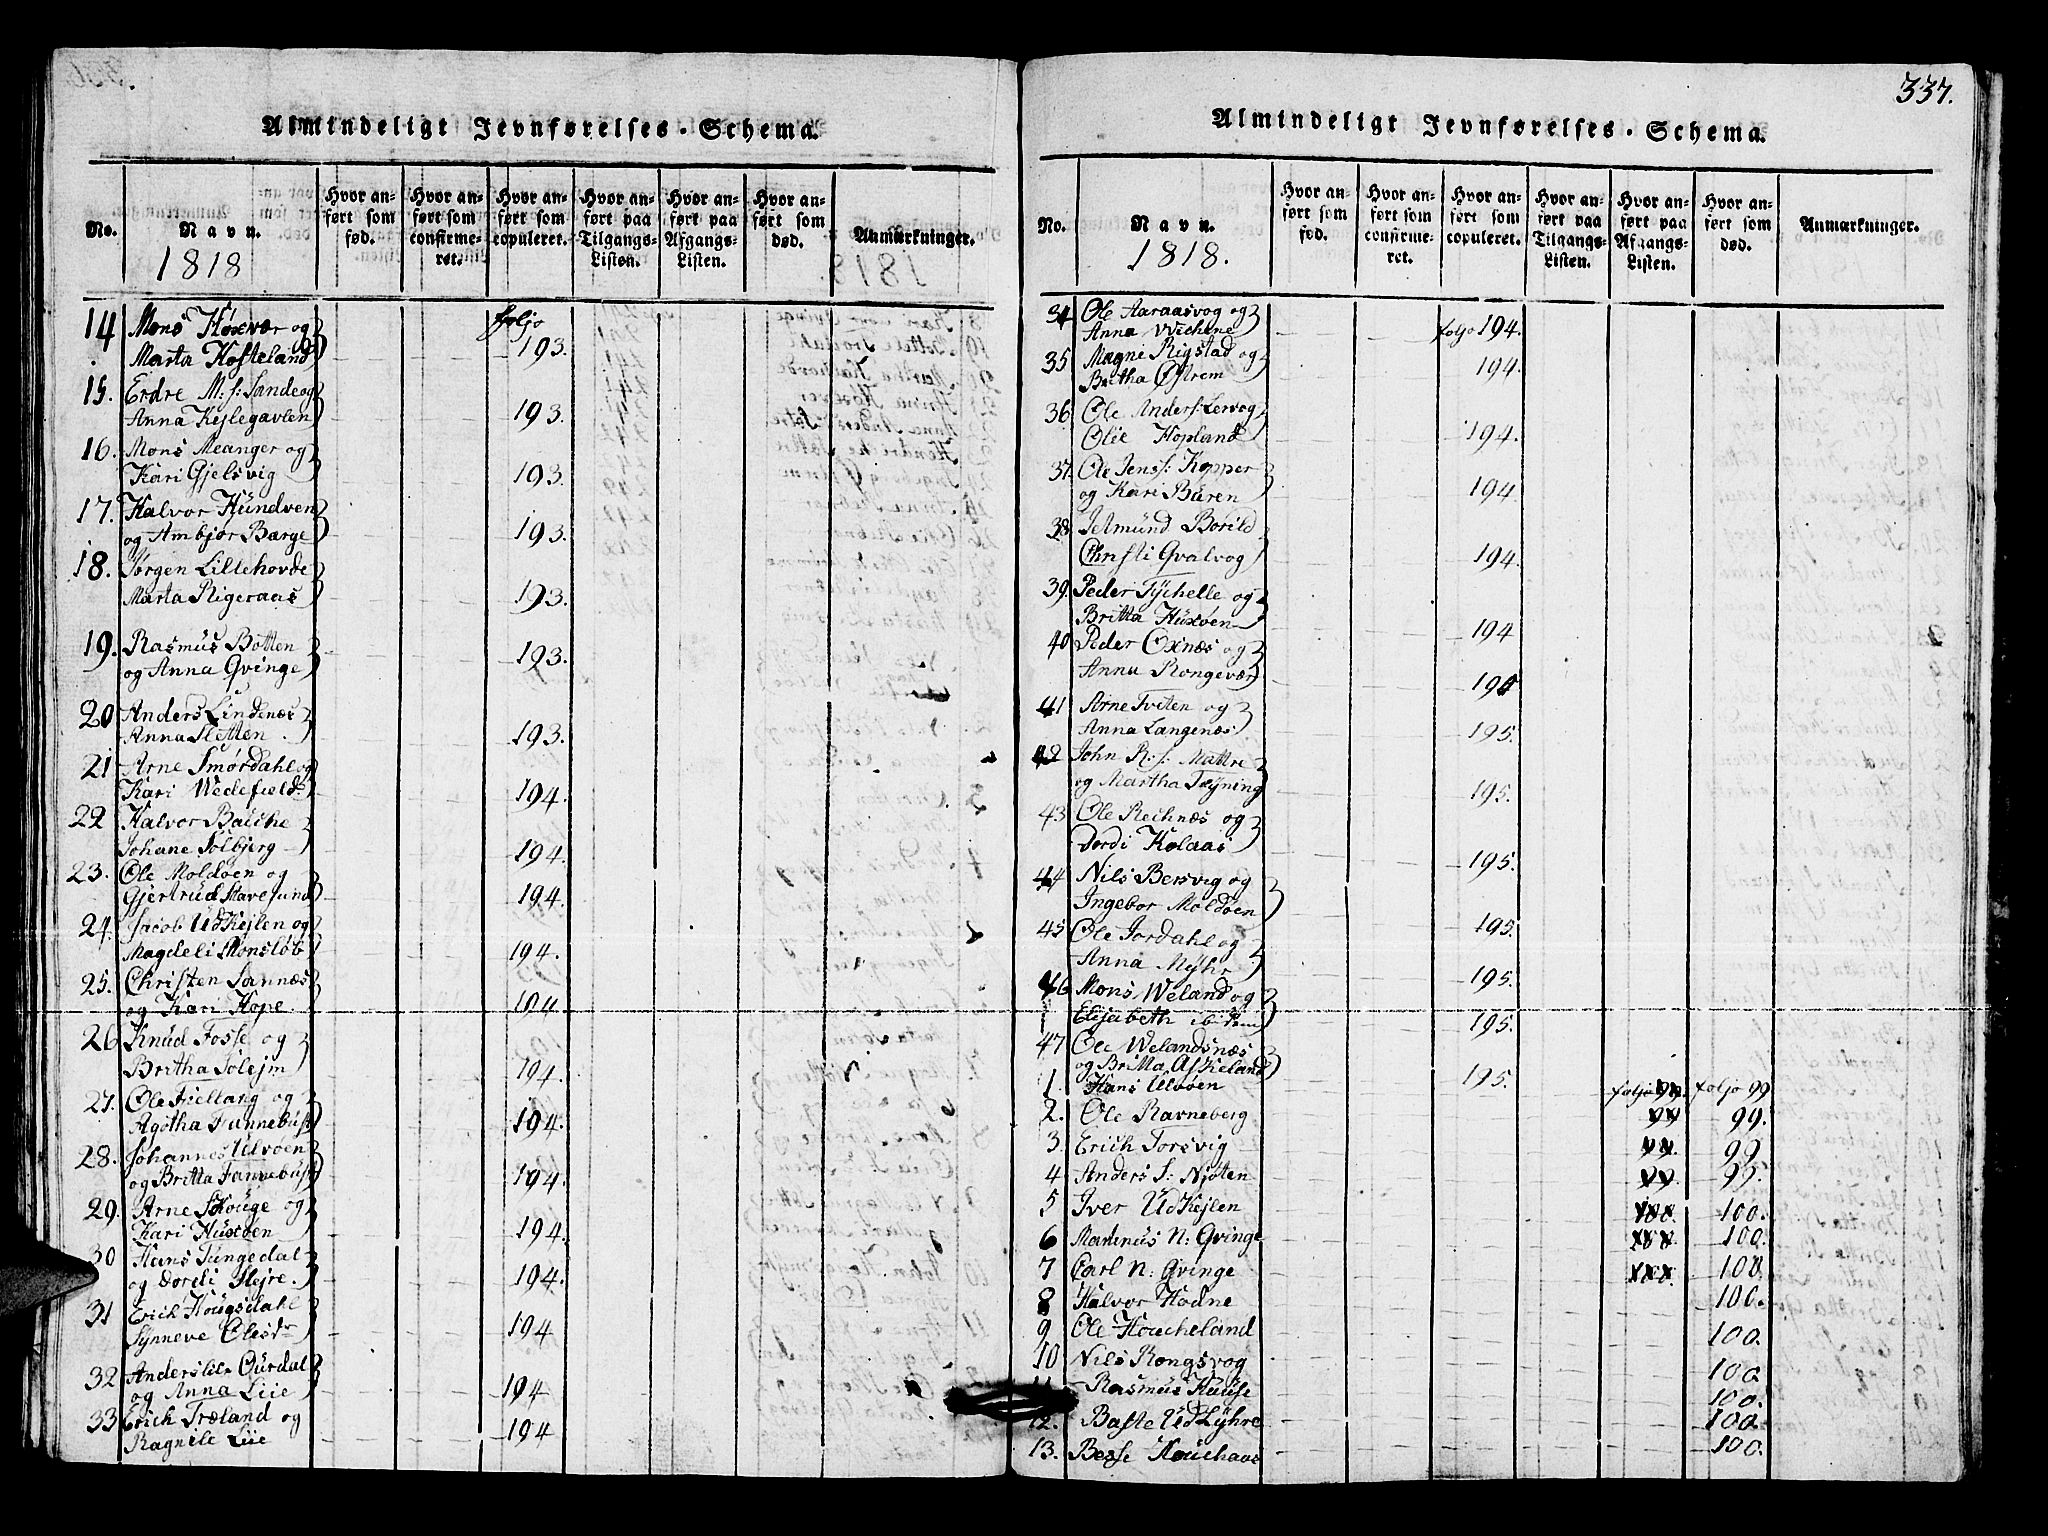 337.
Almindeligt Jevnførelses-Schema.
No. Navn. Hvor anført som fød. Hvor anført som confirmeret. Hvor anført som copuleret. Hvor anført paa Tilgangs-Listen. Hvor anført paa Afgangs-Listen. Hvor anført som død. Anmærkninger.
1818
14 Mons Hoxvær og foljo
Marta Hosteland 193.
15. Erdre M:s: Sande og
Anna Kejlegavlen 193.
16. Mons Meanger og
Kari Gjelsvig 193.
17. Halvor Hundven
og Ambjor Barge 193.
18. Jørgen Lillehovde
Marta Rigeraas 193.
19. Rasmus Botten
og Anna Qvinge 193.
20 Anders Lindenæs
Anna Sletten. 193.
21 Arne Smørdahl og
Kari Wedefield 194.
22 Halvor Basche
Johane Solbjerg 194.
23. Ole Moldøen og
Gjertrud Stavesund 194.
24. Jacob Udkejlen og
Magdeli Monsløb 194.
25. Christen Sannæs
og Kari Hope. 194.
26 Knud Fosse og
Britha Solejm 194.
27. Ole Fieltang og
Agotha Funnebust 194.
28. Johannes Ulvøen
og Britta Fannebust 194.
29. Arne Skouge og
Kari Husøen 194.
30 Hans Tungedal
og Dordi Slejre. 194.
31 Erich Hougsdahl
Synneve Olesdr 194
32 Anders Lil Ourdal
og Anna Liie 194
33 Erich Træland og
Ragnile Liie 194
Almindeligt Jevnførelses-Schema.
No. Navn. Hvor anført som fød. Hvor anført som confirmeret. Hvor anført som copuleret. Hvor anført paa Tilgangs-Listen. Hvor anført paa Afgangs-Listen. Hvor anført som død. Anmærkninger.
1818.
34 Ole Aaraasvog og
Anna Wichene foljo 194.
35 Magne Rigstad og
Britha Østrem 194.
36. Ole Anders: Lervog
Olie Hopland 194.
37. Ole Jens: Kopper
og Kari Buren 194
38 Jetmund Borild
Christi Qvalvog 194.
39. Peder Tychelle og
Britta Husøen 194
40 Peder Oxnæs og
Anna Rongevær 195
41 Arne Tveten og
Anna Langenæs 195.
42 John R:s: Mattre
og Martha Tryning 195.
43 Ole Rechnæs og
Dordi Kolaas 195.
44 Nils Bersvig og
Ingebor Moldøen 195.
45 Ole Jordahl og
Anna Myhr 195.
46 Mons Weland og
Elisabeth ibidem 195.
47 Ole Welandsnæs
og Britta Askeland 195.
1. Hans Ulvøen foljo 99. foljo 99
2. Ole Ravneberg 99 99.
3. Erich Torsvig 99. 99
4 Anders S: Njøten 99. 99.
5 Iver Udkejlen 100. 100.
6 Mannus N: Qvinge 100. 100.
7 Carl N: Qvinge 100. 100.
8 Halvor Hodne 100.
9 Ole Houcheland 100.
10 Nils Rongsvog 100
Rasmus Huuse 100.
12. Baste Udlyhre 100.
13. Besse Houchaas 100.